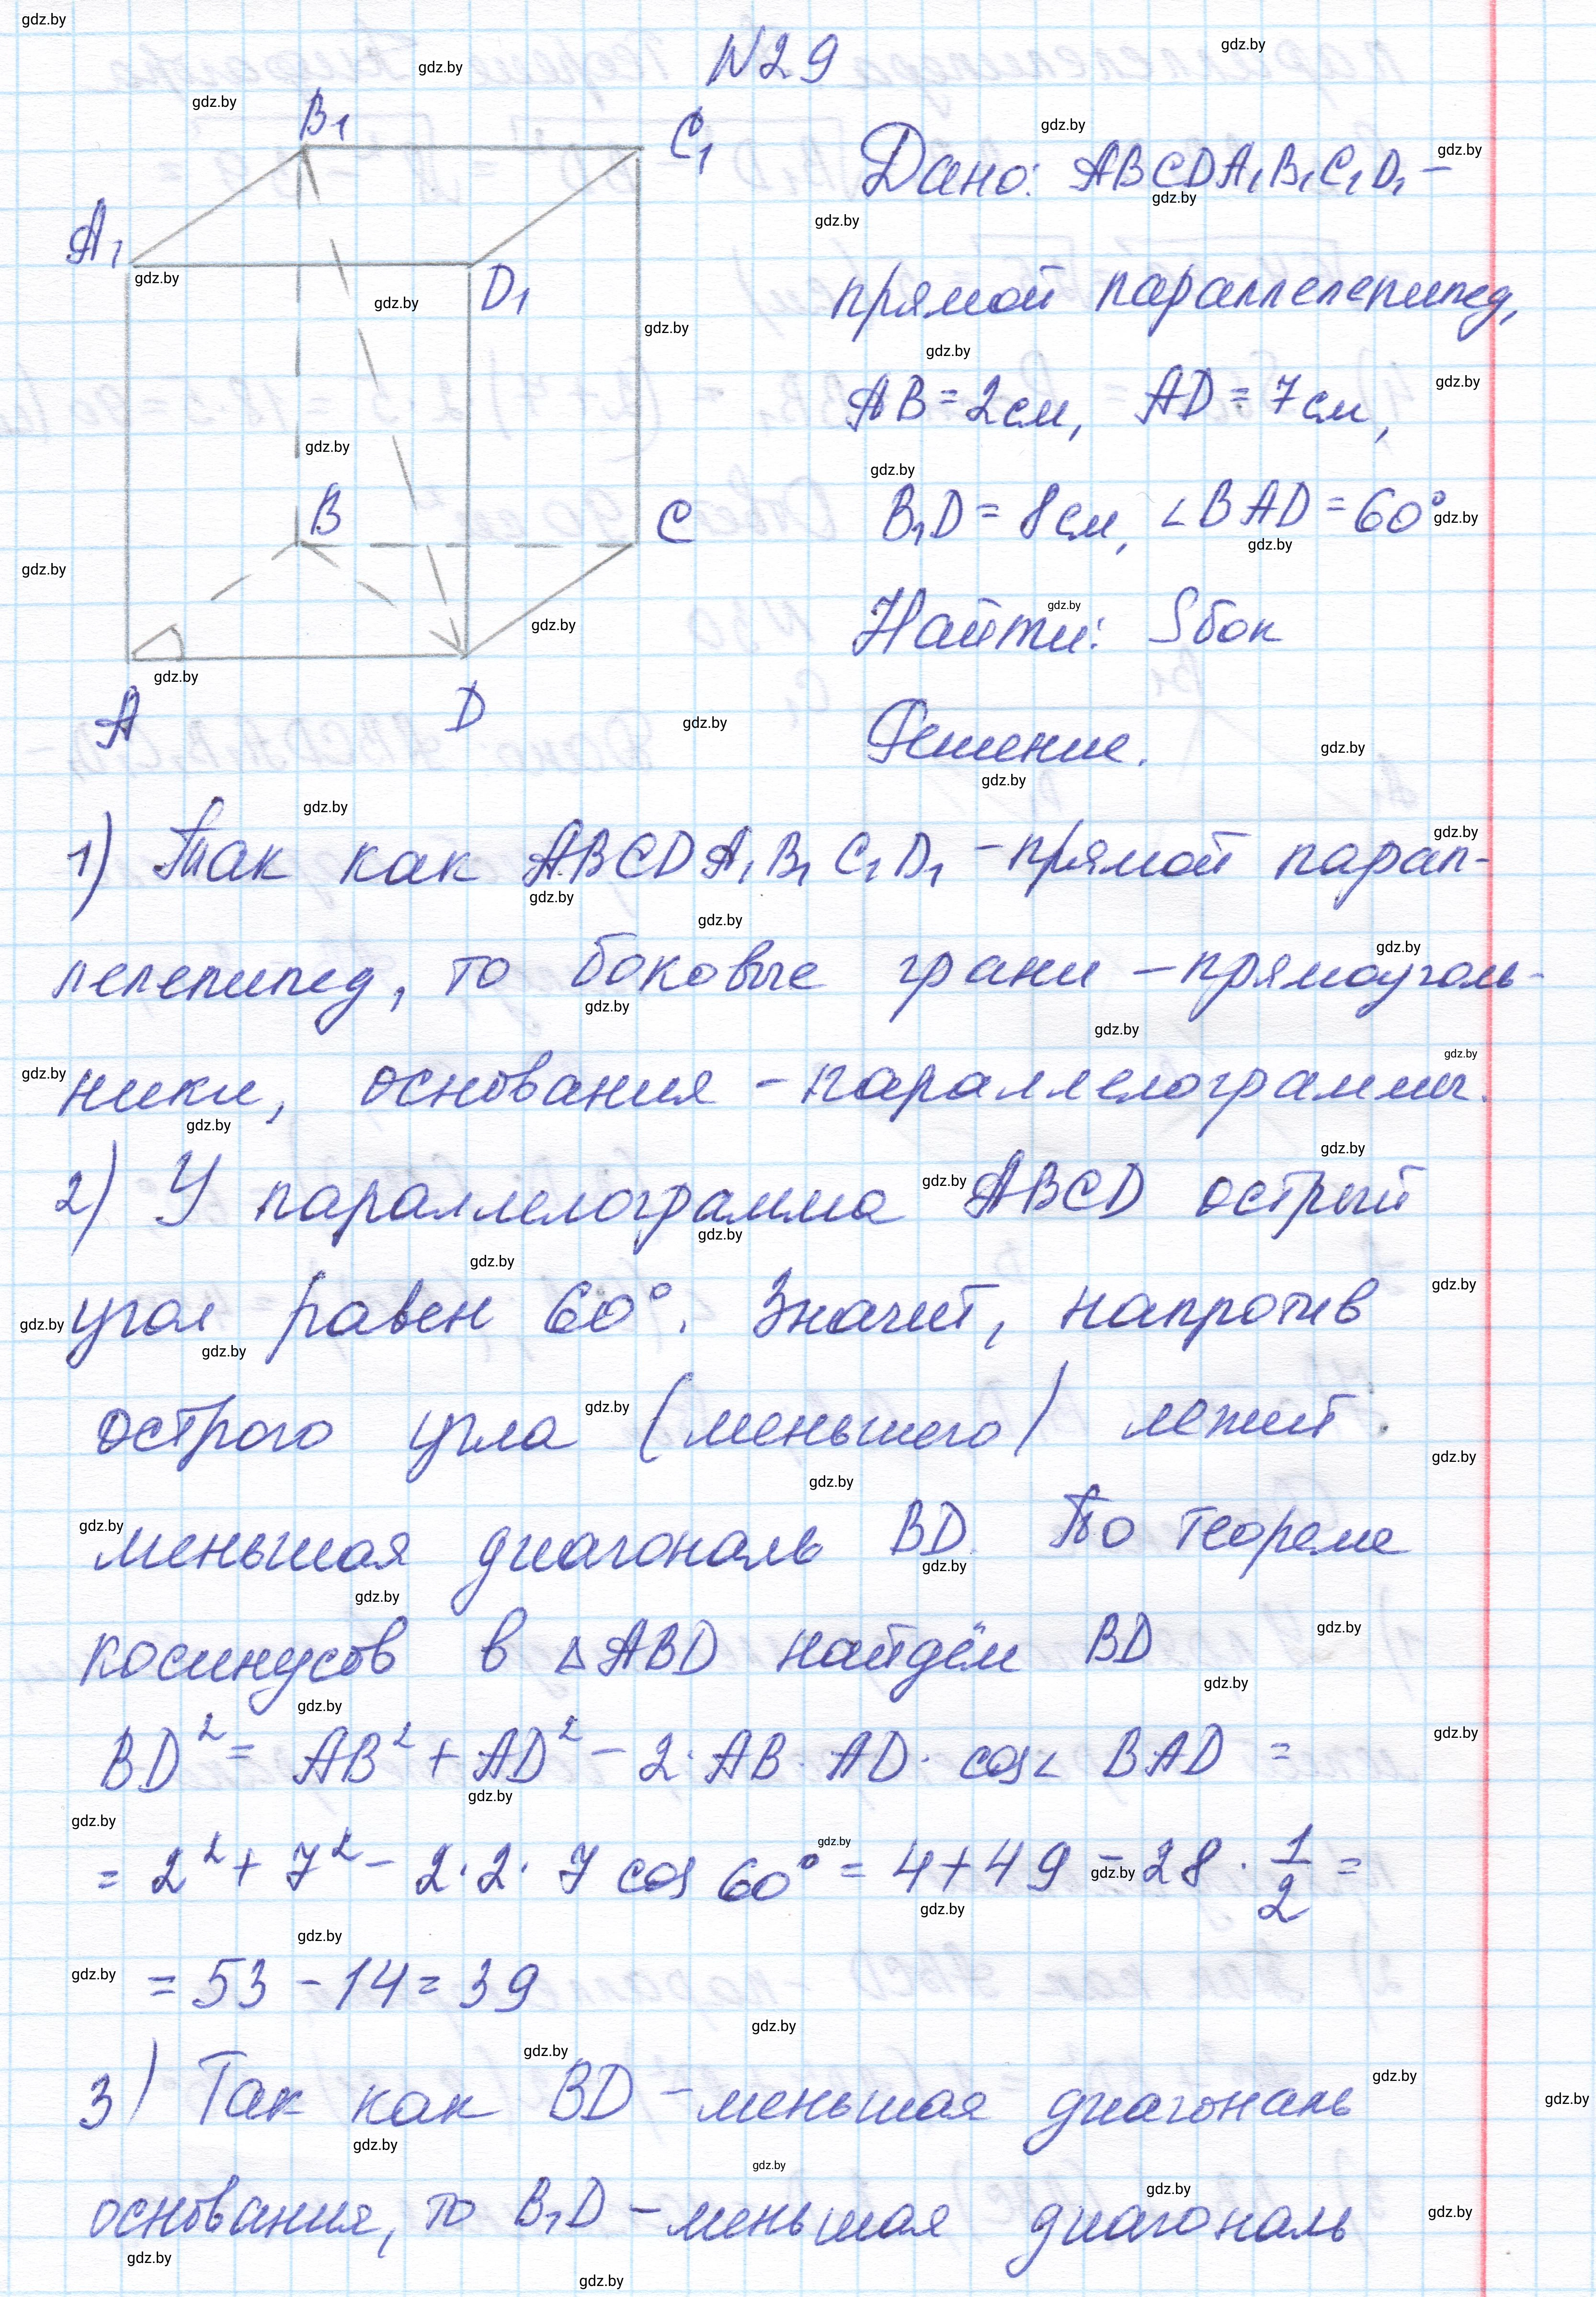 N29
B₁
C₁
A₁
D₁
B
C
A
D
Дано: ABCDA₁B₁C₁D₁ –
прямой параллелепипед,
AB = 2см, AD = 7см,
B₁D = 8см, ∠BAD = 60°
Найти: Sбок
Решение.
1) Так как ABCDA₁B₁C₁D₁ – прямой парал-
лелепипед, то боковые грани – прямоуголь-
ники, основания – параллелограммы.
2) У параллелограмма ABCD острый
угол равен 60°. Значит, напротив
острого угла (меньшего) лежит
меньшая диагональ BD. По теореме
косинусов в △ABD найдём BD
BD² = AB² + AD² – 2·AB·AD·cos∠BAD =
= 2² + 7² – 2·2·7 cos 60° = 4+49 – 28 · 1/2 =
= 53 – 14 = 39
3) Так как BD – меньшая диагональ
основания, то B₁D – меньшая диагональ
gdz.by